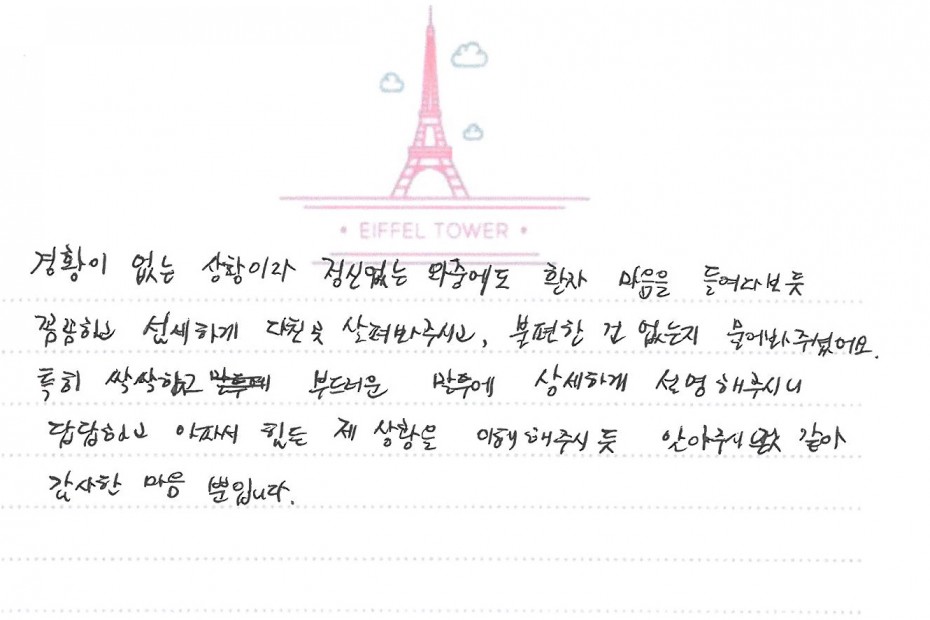 • EIFFEL TOWER •
경황이 없는 상황이라 정신없는 와중에도 환자 마음을 들여다보듯
꼼꼼하고 섬세하게 다친 곳 살펴봐주시고, 불편한 건 없는지 물어봐주셨어요.
특히 싹싹하고 부드러운 말투에 상세하게 설명해주시니
답답하고 아파서 힘든 제 상황을 이해해주시듯 알아주시는 것 같아
감사한 마음 뿐입니다.